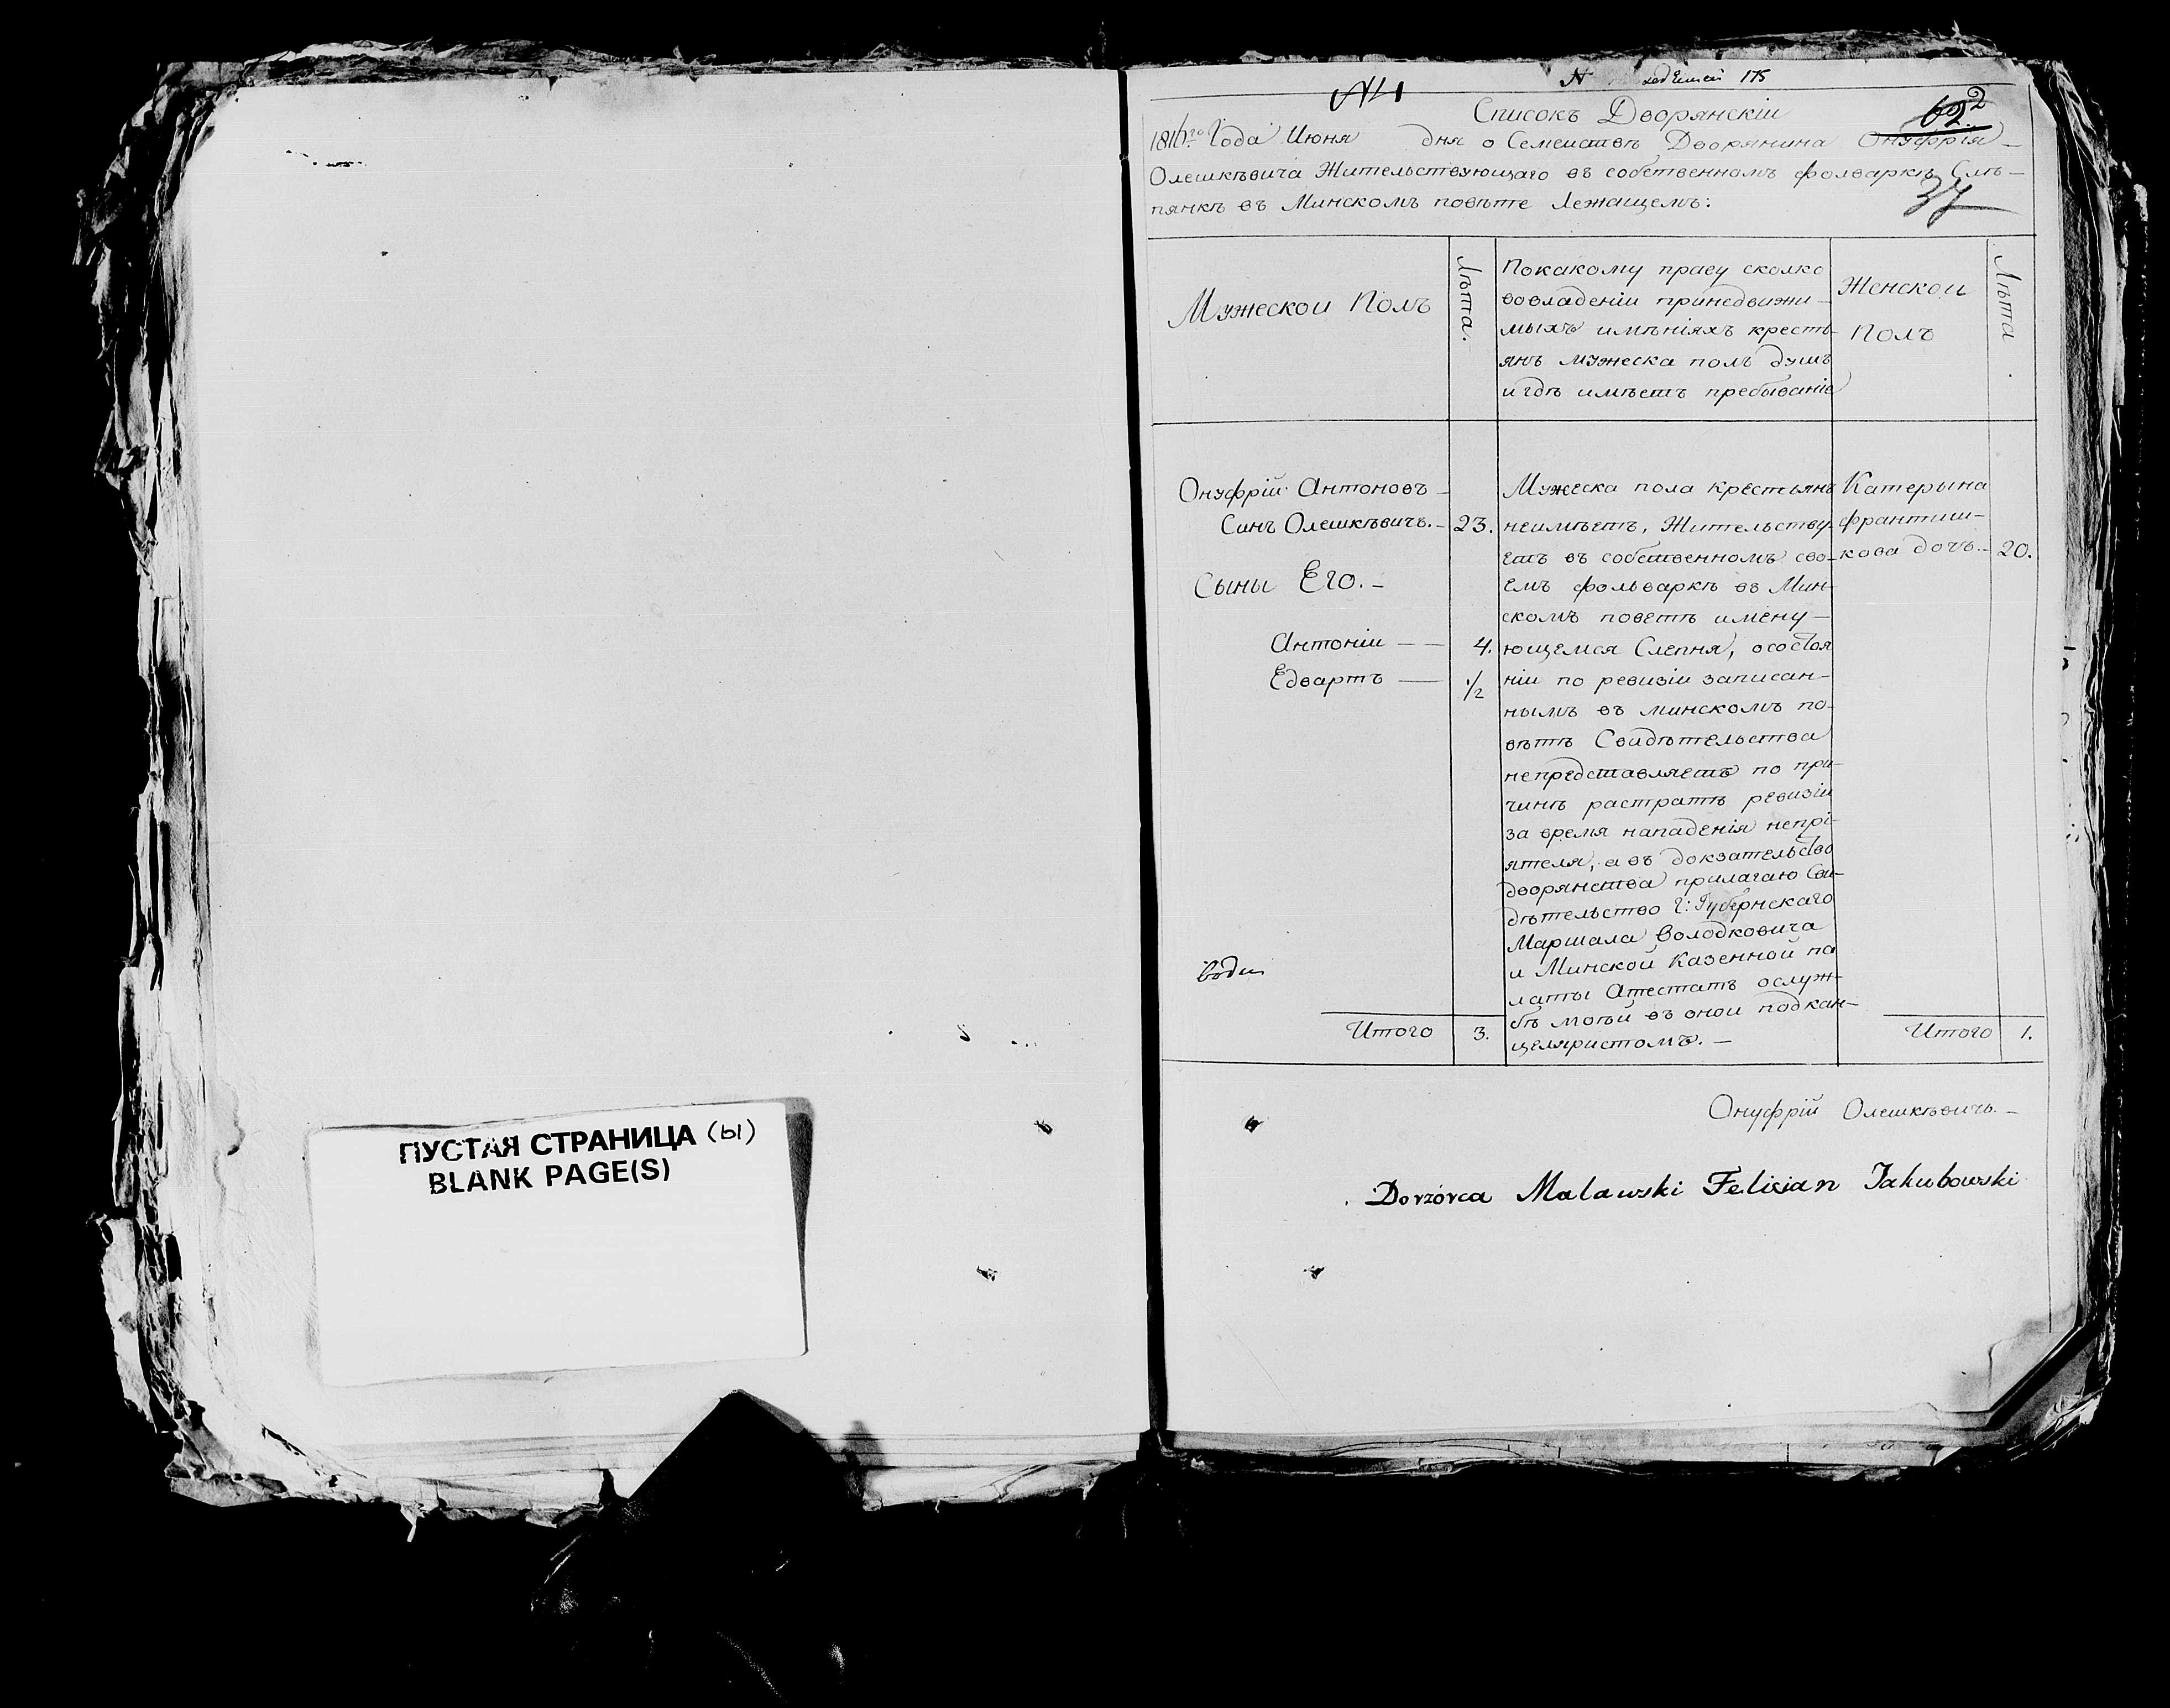 ПУСТАЯ СТРАНИЦА (ы)
BLANK PAGE(S)
№ 175
№1
Списокъ Дворянскіи
692
1816го Года Июня дня о Семеиствѣ Дворянина Онуфрія
Олешкѣвича Жительствующаго въ собственномъ фолваркѣ Слѣ-
пянкѣ въ Минскомъ повѣте Лежащемъ:
37
Мужескои Полъ
Лѣта.
Покакому праву сколко
вовладеніи принедвижи-
мыхъ имѣніяхъ кресть-
янъ мужеска полъ душъ
и гдѣ имѣетъ пребываніе
Женскои
Полъ
Лѣта
Онуфрій Антоновъ
Синъ Олешкѣвичъ. 23.
Сыны Его.
Антоніи 4.
Едвартъ 1/2
Мужеска пола крестьянъ
неимѣетъ, Жительству-
етъ въ собственномъ сво-
емъ фольваркѣ въ Мин-
скомъ поветѣ имену-
ющемся Слепня, осостоя
ніи по ревизіи записан-
нымъ въ минскомъ по-
вѣтѣ Свидѣтельства
непредставляетъ по при-
чинѣ растратѣ ревизіи
за время нападенія непрі-
ятеля, а въ докзательство
дворянства прилагаю Сви-
дѣтельство Г: Губернскаго
Маршала Володковича
и Минской Казенной па
латы Атестатъ ослуж-
бѣ моѣй въ онои подкан-
целяристомъ.
Катерына
франтиш-
кова дочъ. 20.
Итого 3.
Итого 1.
Онуфрій Олешкѣвичъ.
Dorzórca Malawski Felician Jakubowski